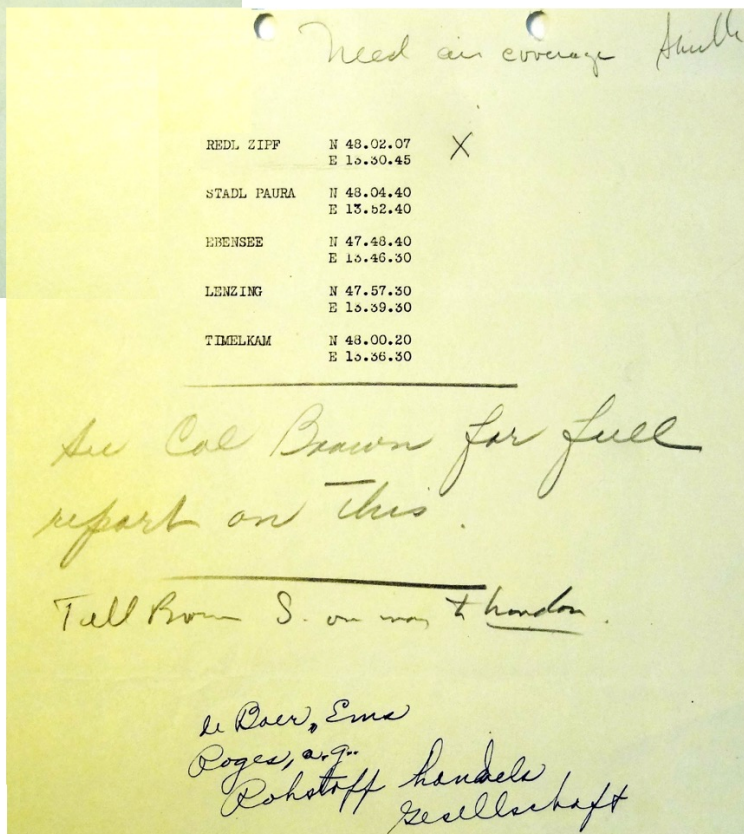 Need air coverage
REDL ZIPF N 48.02.07 X
E 13.30.45
STADL PAURA N 48.04.40
E 13.52.40
EBENSEE N 47.48.40
E 13.46.30
LENZING N 47.57.30
E 13.39.30
TIMELKAM N 48.00.20
E 13.36.30
See Col Brown for full
report on this.
Tell Brown S. on way to London.
de Boer, Ema
Roges, a.g.
Rohstoff handels
gesellschaft